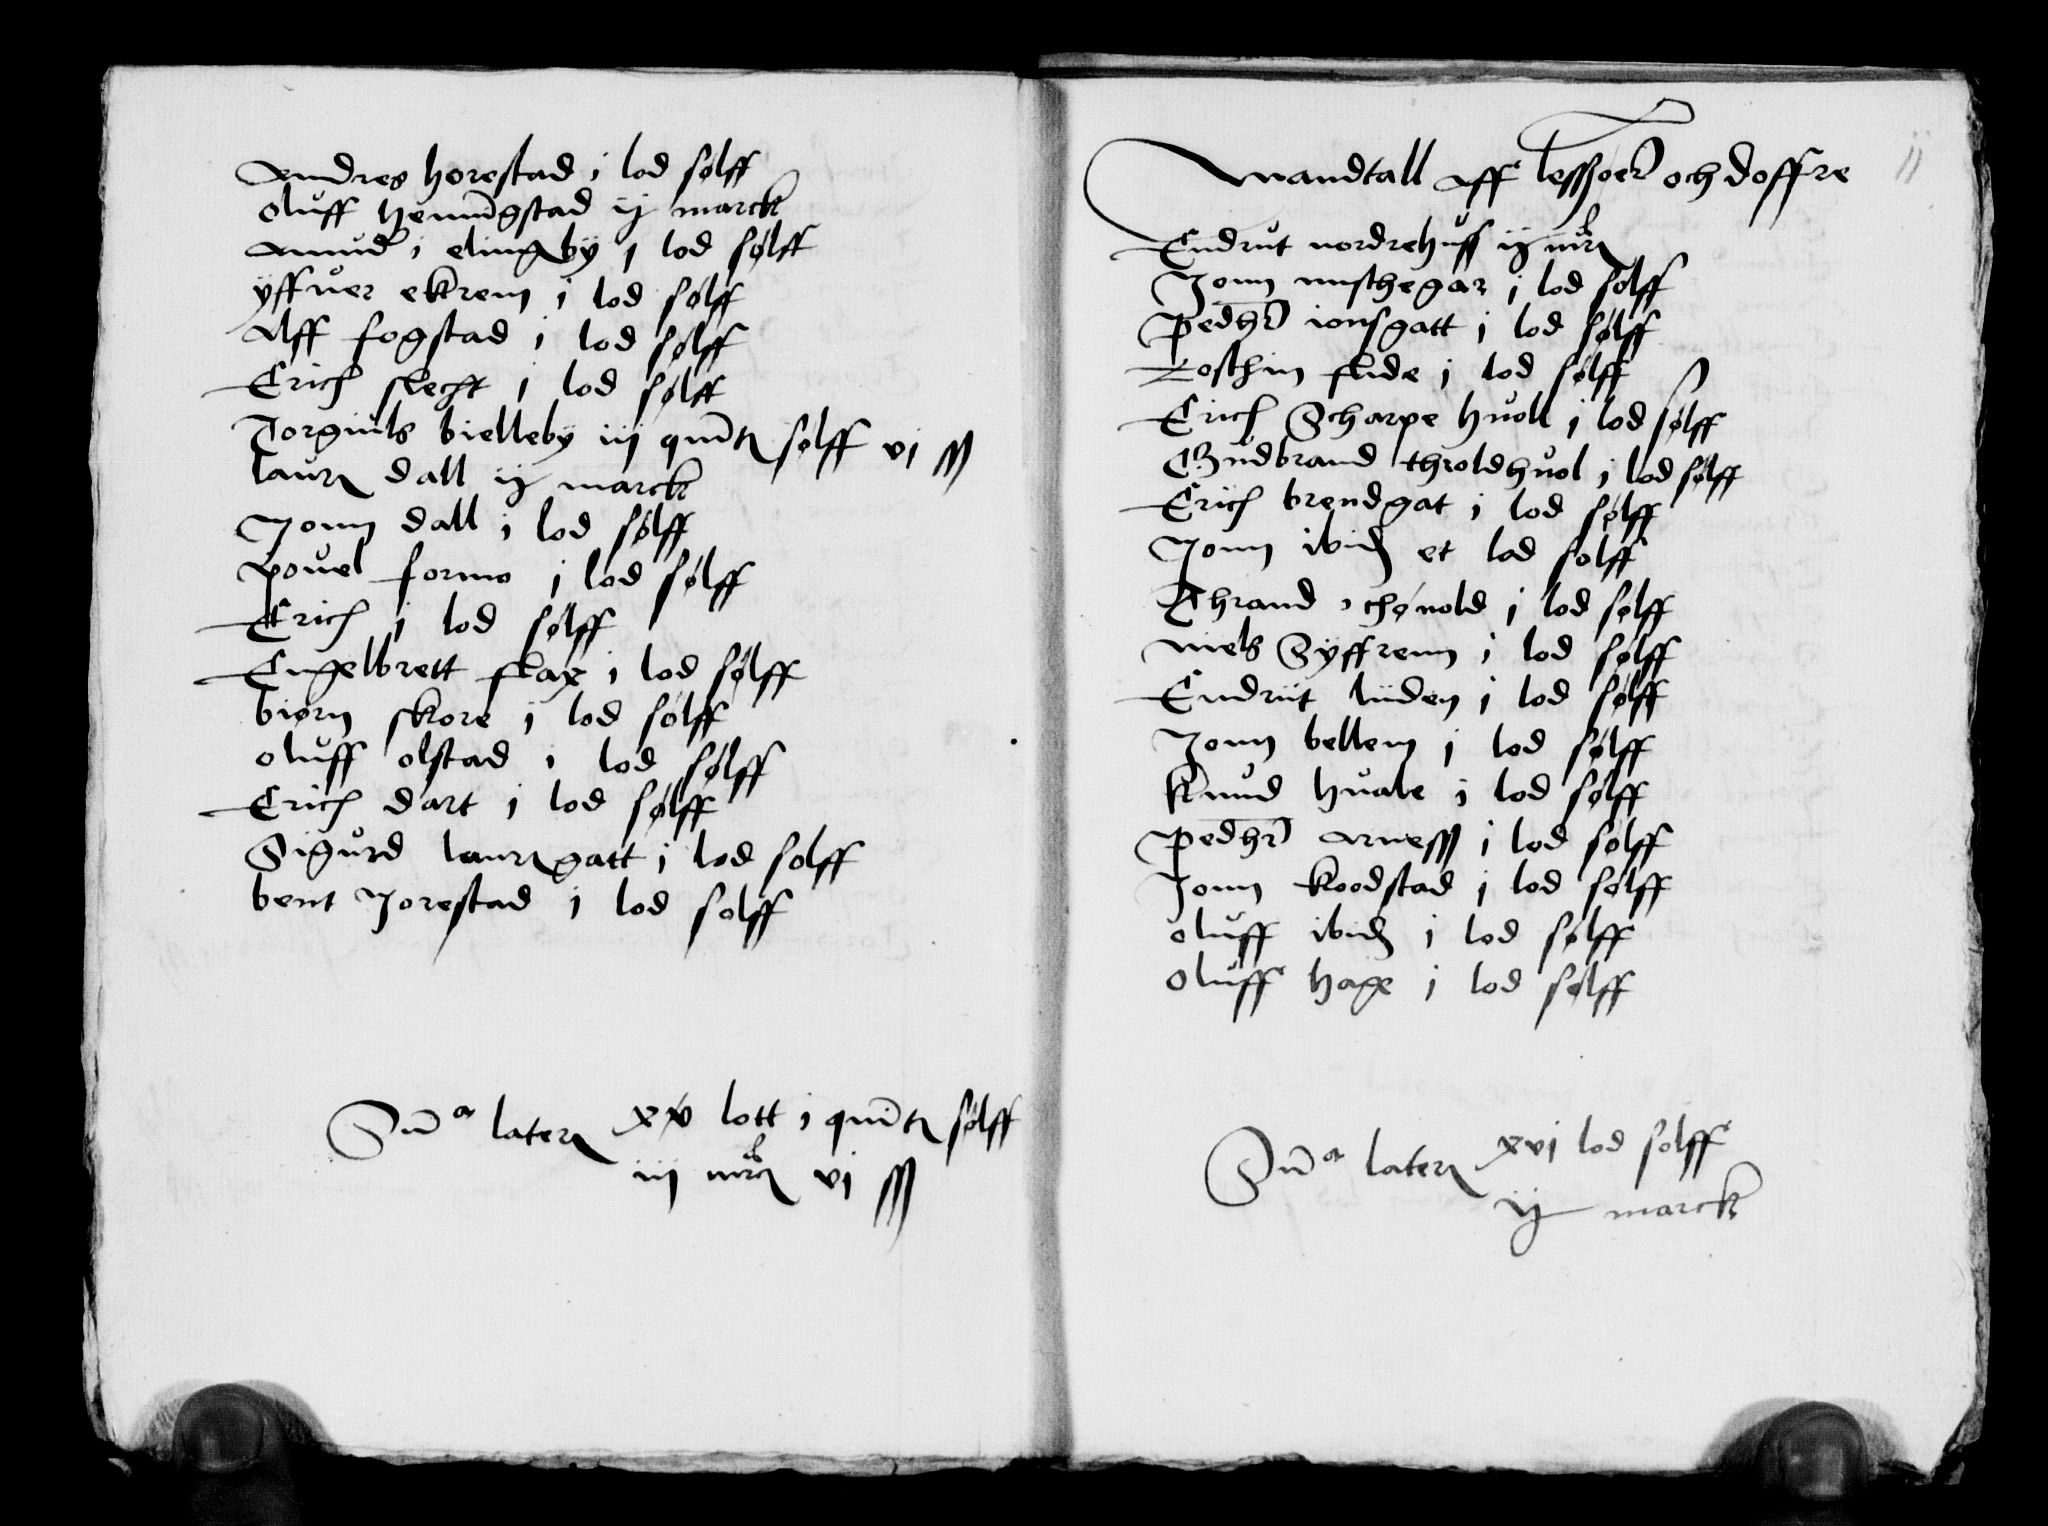 Andres horestad i lod sølff
Oluff henni̅gstad ij marck
Amud i elingby j lod sølff
yffuer ekrem j lod sølff
Alff fogstad i lod sølff
Erich slecht i lod sølff
Torgiuls bielleby iij qui̅t sølff vj ß
laur dall ij marck
Jonn dall i lod sølff
povel formo j lod sølff
Erich j lod sølff
Engelbrett skar i lod sølff
biørn skore j lod sølff
oluff olstad i lod sølff
Erich dart j lod sølff
Sigurd laurgatt j lod sølff
bent Jorestad j lod sølff
Su̅a later xv lott i qui̅t sølff
iiij mrk vj ß
Mandtall Aff lessøer och doffre
11
Endrut nordrehuss ij mrk
Jonn musthegar j lod sølff
Pedhr ionsgatt j lod sølff
Tosthin slide j lod sølff
Erich Scharpe huoll j lod sølff
Gudbrand throldhuol j lod sølff
Erich brendgat i lod sølff
Jonn ibid et lod sølff
Thrand i thønold j lod sølff
niels Syffrenn i lod sølff
Endrut liiden j lod sølff
Jonn bellem j lod sølff
knud huale i lod sølff
pedhr arness j lod sølff
Jonn koodstad j lod sølff
oluff ibid i lod sølff
oluff hage i lod sølff
Su̅a later xvj lod sølff
ij marck